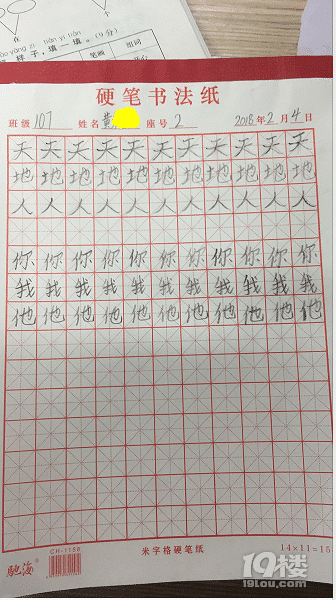 zì yàng zi tián yī tián
样子，填一填。(9分)
笔画 组词
在
硬笔书法纸
班级 107 姓名 黄 座号 2 2018年2月4日
天天天天天天天天天天
地地地地地地地地地地
人人人人人人人人人人
你你你你你你你你你你
我我我我我我我我我我
他他他他他他他他他他
CH-1158 米字格硬笔纸 14×11=15
馳海
19楼
19lou.com